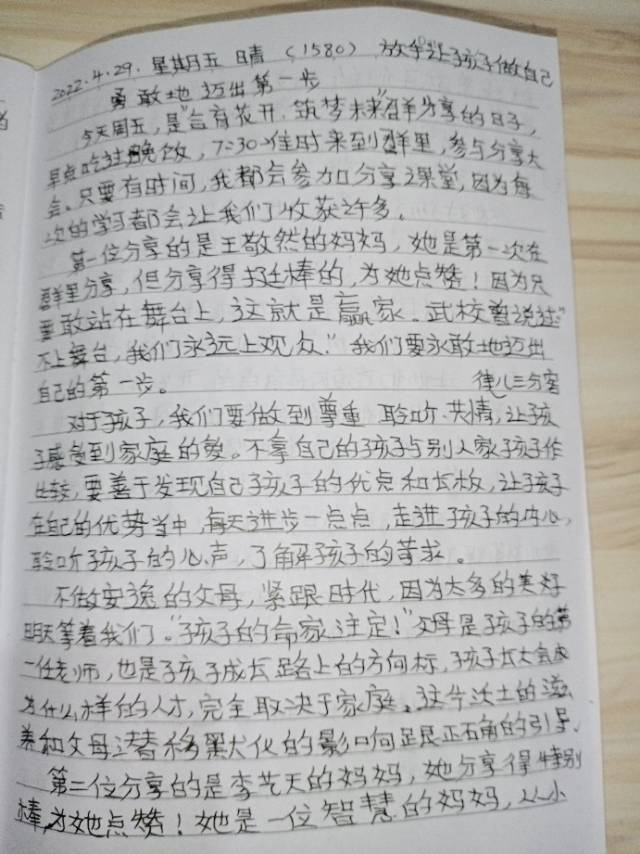 2022.4.29.星期五 晴 (1580) 放手让孩子做自己
勇敢地迈出第一步
今天周五,是"合育花开,筑梦未来"群分享的日子,
早点吃过晚饭,7:30准时来到群里,参与分享大
会、只要有时间,我都会参加分享课堂,因为每
次的学习都会让我们收获许多。
第一位分享的是王敬然的妈妈,她是第一次在
群里分享,但分享得挺棒的,为她点赞!因为只
要敢站在舞台上,这就是赢家.武校曾说过"
不上舞台,我们永远上观众."我们要永敢地迈出
自己的第一步。 德八三分室
对于孩子,我们要做到尊重 聆听.共情,让孩
子感受到家庭的爱。不拿自己的孩子与别人家孩子作
比较,要善于发现自己孩子的优点和长板,让孩子
在自己的优势当中,每天进步一点点,走进孩子的内心,
聆听孩子的心声,了解孩子的荣求。
不做安逸的父母,紧跟时代,因为太多的美好
明天等着我们。"孩子的命家注定!"父母是孩子的第
一任老师,也是孩子成长路上的方向标,孩子长大会成
为什么样的人才,完全取决于家庭。这片沃土的滋
养和父母潜移默化的影响足良正面的引导、
第二位分享的是李艺天的妈妈,她分享得特别
棒,为她点赞!她是一位智慧的妈妈,从小